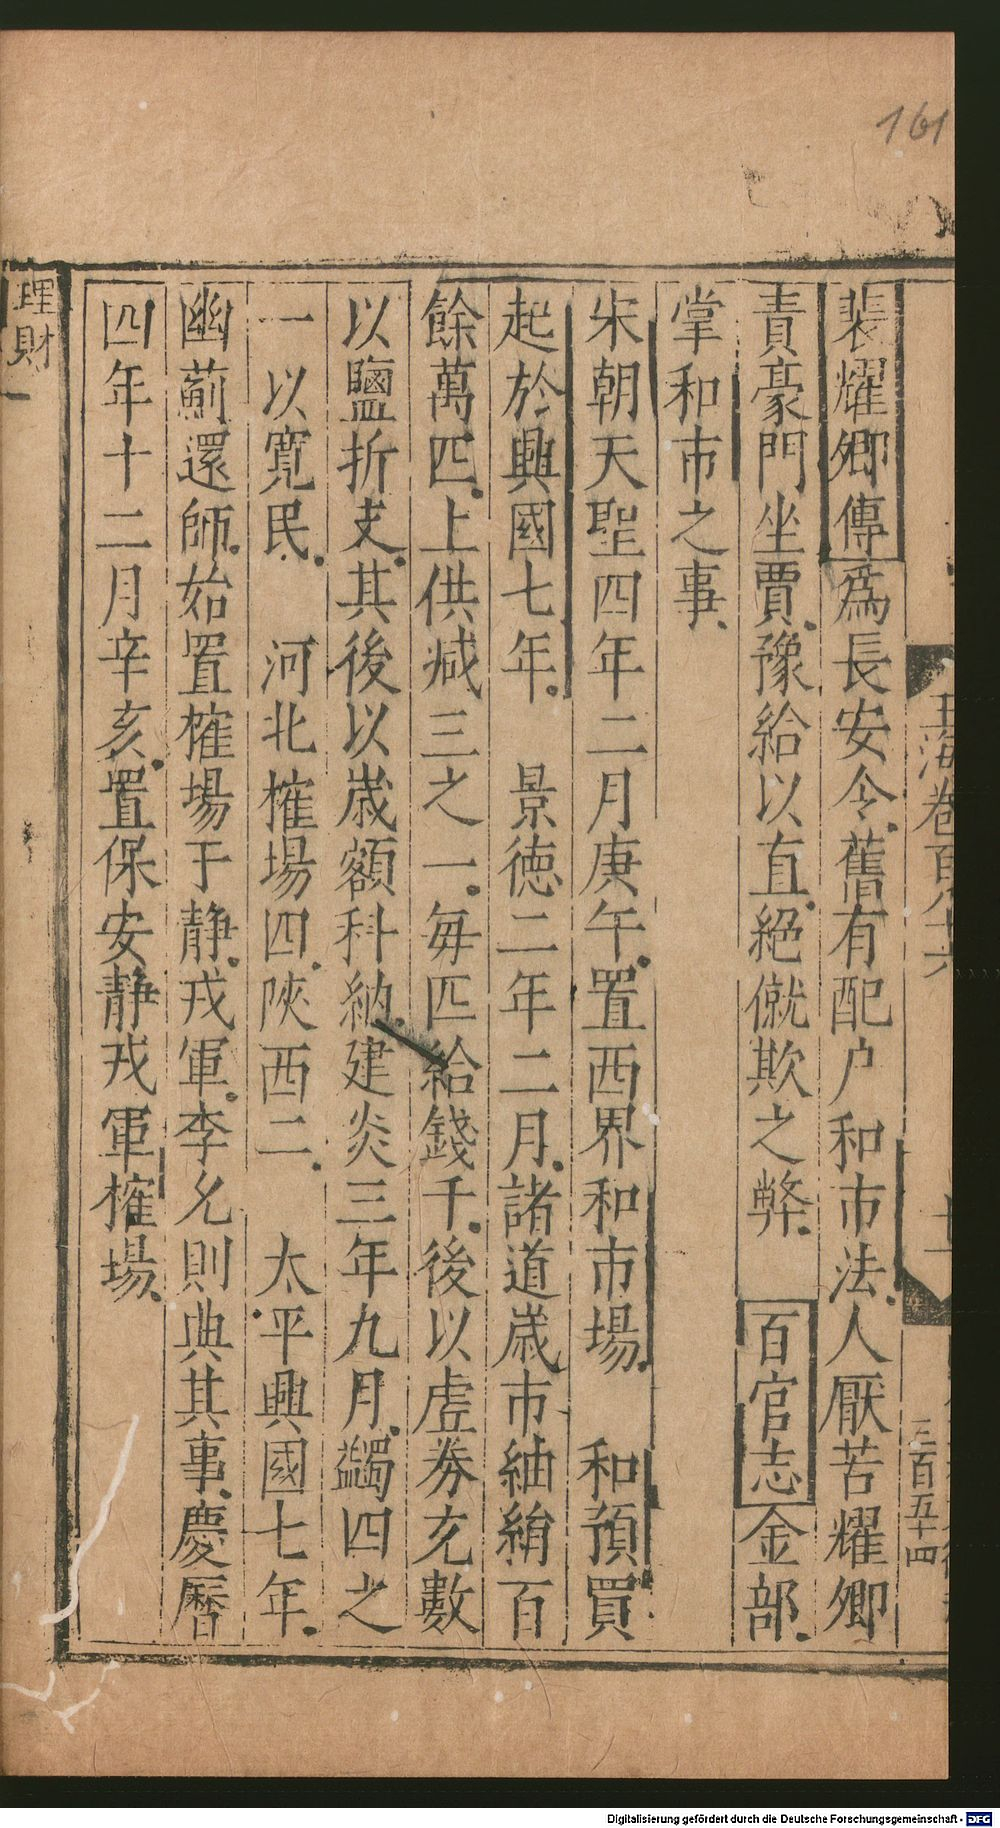 161
裴耀卿傳為長安令舊有配户和市法人厭苦耀卿
責豪門坐賈豫給以直絕僦欺之弊 百官志金部
掌和市之事
宋朝天聖四年二月庚午置西界和市場 和預買
起於興國七年 景德二年二月諸道歲市紬絹百
餘萬匹上供減三之一每匹給錢千後以虛券充數
以鹽折支其後以歲額科納建炎三年九月蠲四之
一以寬民 河北榷場四陝西二 太平興國七年
幽薊還師始置榷場于静戎軍李允則典其事慶曆
四年十二月辛亥置保安静戎軍榷場
理財一
玉海卷百八十六
十一
三百五十四
Digitalisierung gefördert durch die Deutsche Forschungsgemeinschaft - DFG